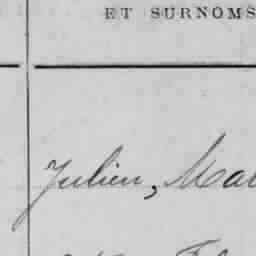 ET SURNOMS
Julien, Mal